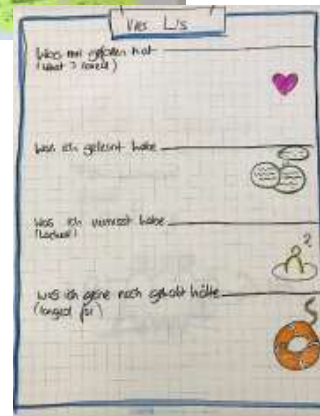 Vier L's
Was mir gefallen hat
(What I loved)
Was ich gelernt habe
Was ich vermisst habe
(lacked)
Was ich gerne noch gehabt hätte
(longed for)
?